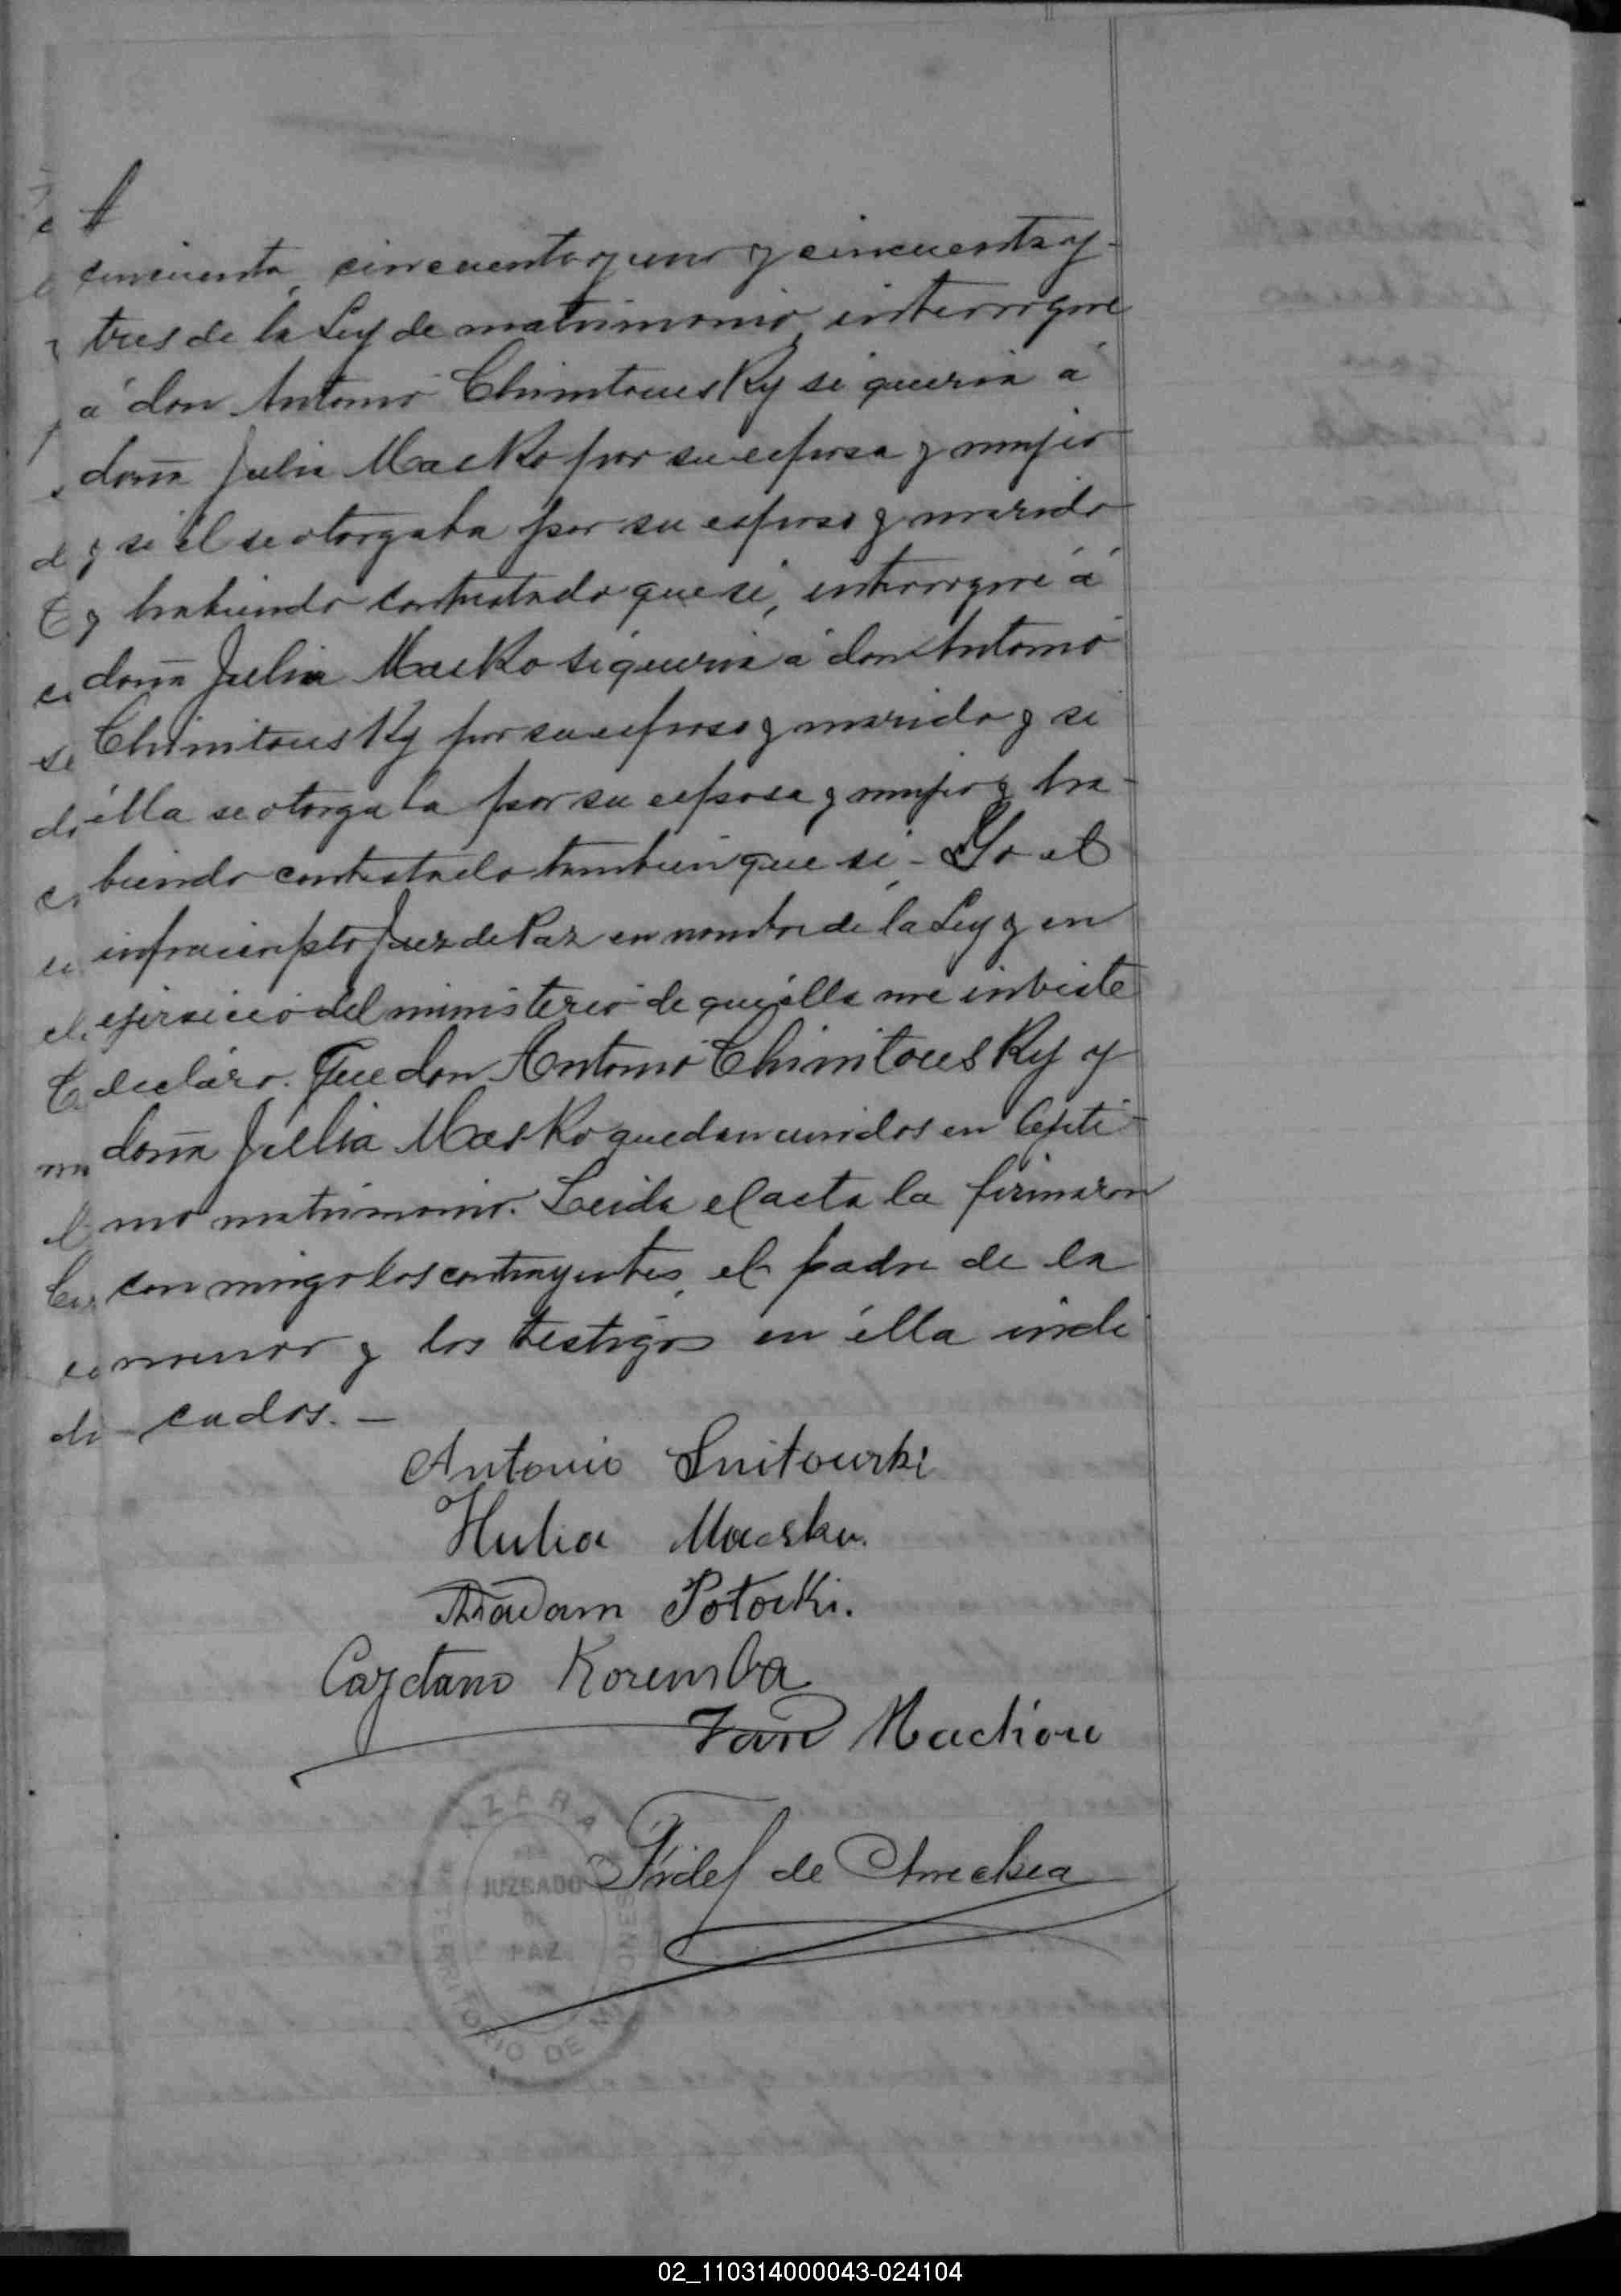 cincuenta, cincuenta y uno y cincuenta y
tres de la Ley de matrimonio, interrogué
á don Antonio Chimitouesky si queria á
doña Julia Macko por su esposa y mujer
y si él se otorgaba por su esposo y marido
y habiendo contestado que si, interrogué á
doña Julia Macko si queria á don Antonio
Chimitouesky por su esposo y marido y si
élla se otorgaba por su esposa y mujer y ha-
biendo contestado tambien que si - Yo el
infrascripto Juez de Paz en nombre de la Ley y en
el ejersicio del ministerio de que élla me inviste
declaro. Que don Antonio Chimitouesky y
doña Julia Macko quedan unidos en lejiti-
mo matrimonio. Leida el acta la firmaron
conmigo los contrayentes, el padre de la
menor y los testigos en élla indi
cados. -
Antonio Snitourki
Hulia Macsku.
Potocki.
Cayetano Koremba
Jan Machou
Fidel de
AZARA
JUZGADO
DE
PAZ
TERRITORIO DE MISIONES
02_110314000043-024104